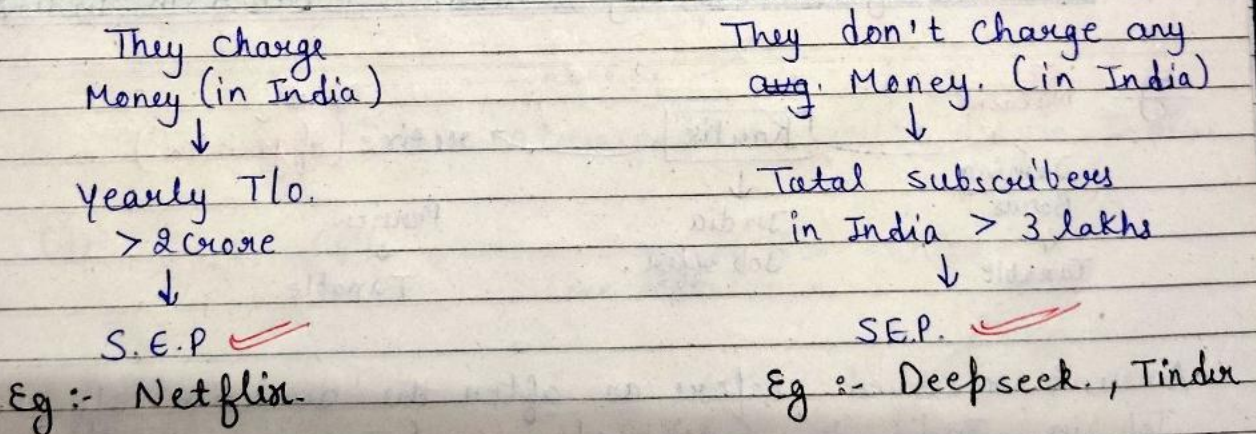 They charge
Money (in India)
↓
Yearly T/o.
> 2 crore
↓
S.E.P ✓
Eg :- Netflix.
They don't charge any
avg. Money. (in India)
↓
Total subscribers
in India > 3 lakhs
↓
SEP. ✓
Eg :- Deepseek., Tinder